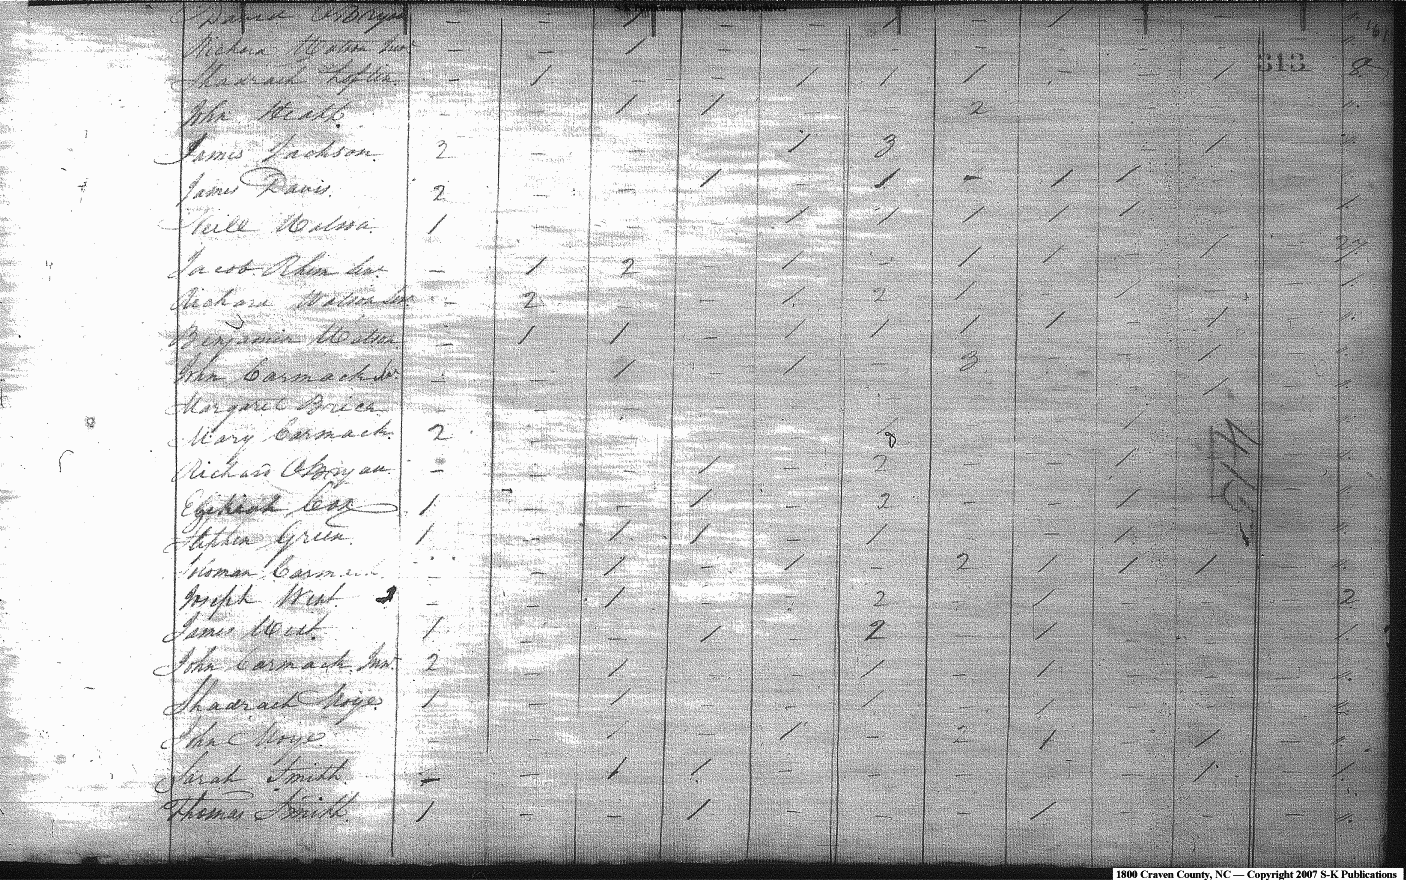 David OBryan - - / - - / - / - - -
Richard Watson Junr - - / - - - - - - -
Shadrach Loftin - / - - / / / - - / - 8
313
John Heath - - / / - - 2 - - - -
James Jackson 2 - - - / 3 - - - / -
James Davis 2 - - / - / - / / - -
Neill Watson 1 - - - / / / / / - -
Jacob Rhem Senr - / 2 - / - / / - / - 27
Richard Watson Senr - 2 - - / 2 / - / - -
Benjamin Watson - / / - / / / / - / -
John Carmack Sr. - - / - / - 3 - - / -
Margaret Brice - - - - - - - - - / -
Mary Carmack 2 - - - - - - - / - -
Richard OBryan - - - / - 2 - - / - -
Hezekiah Cox 1 - - / - 2 - - / - -
Stephen Green 1 - / / - / - - / - -
Carmack - - / - / - 2 / / / -
Joseph West - - / - - 2 - / - - - 2
James West 1 - - / - 2 - / - - -
John Carmack Junr 2 - / - - / - / - - -
Shadrach Moye 1 - / - - / - / - - -
John Moye - - / - / - 2 / - / -
Sarah Smith - - / / - - - - - / -
Thomas Smith 1 - - / - - - / - - -
1800 Craven County, NC — Copyright 2007 S-K Publications